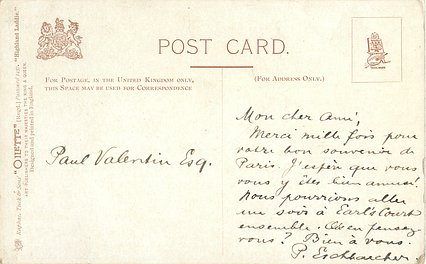 POST CARD.
FOR POSTAGE, IN THE UNITED KINGDOM ONLY,
THIS SPACE MAY BE USED FOR CORRESPONDENCE
(FOR ADDRESS ONLY.)
Paul Valentin Esq.
Mon cher Ami,
Merci mille fois pour
votre bon souvenir de
Paris. J'espère que vous
vous y êtes bien amusé.
Nous pourrions aller
un soir à Earl's Court
ensemble. Qu'en pensez
vous? Bien à vous.
P. Eschbaecher
Raphael Tuck & Sons' "OILETTE" [Regd.] Postcard "Highland Laddie."
ART PUBLISHERS TO THEIR MAJESTIES THE KING & QUEEN.
Designed and printed in England.